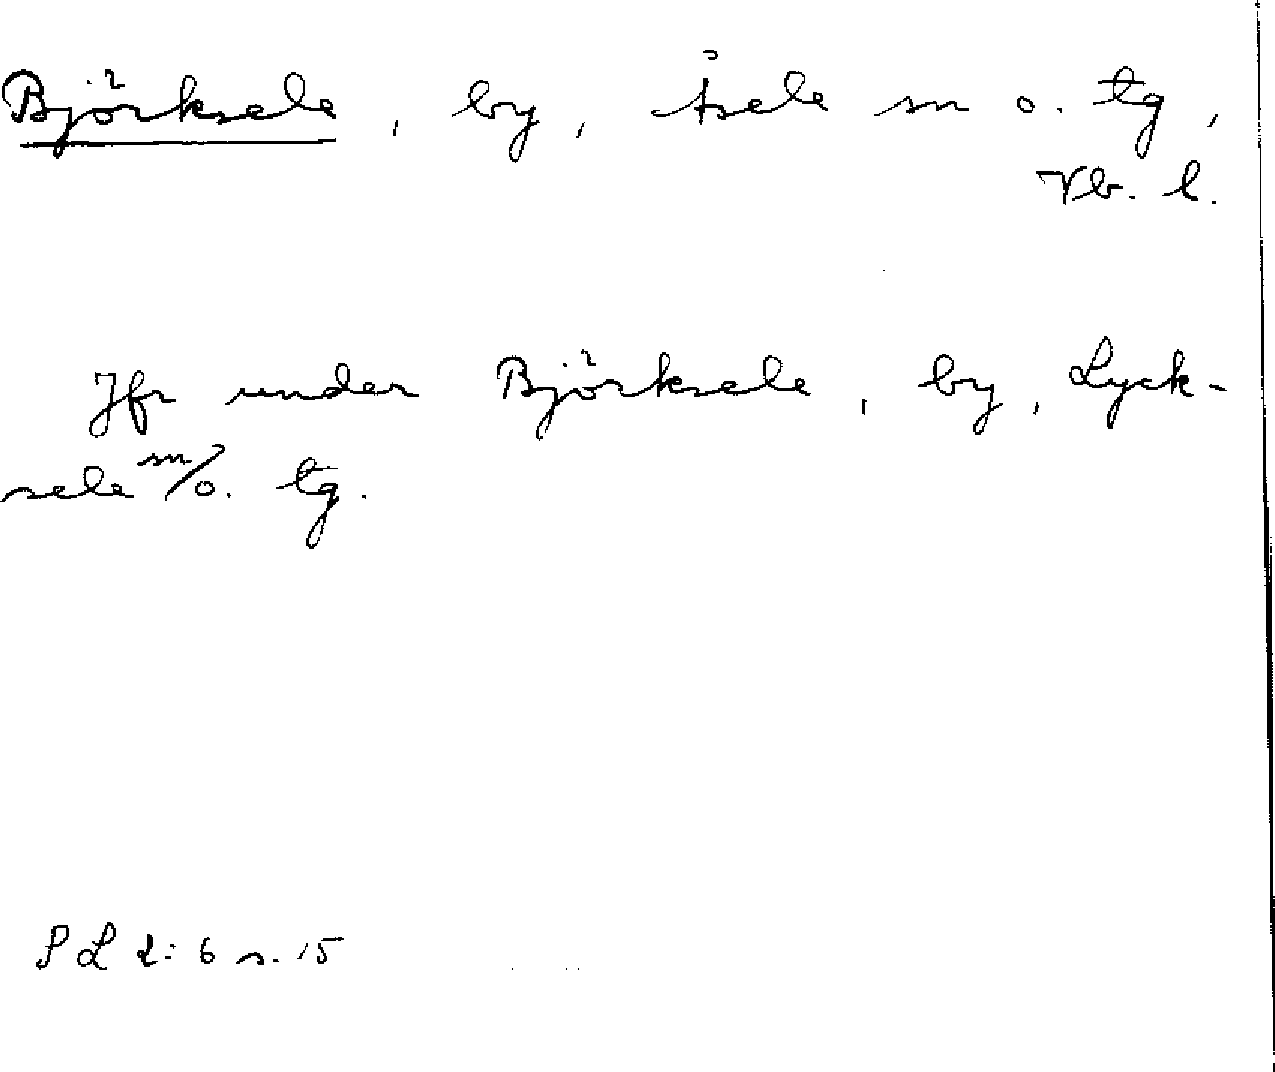 Björksele, by, Åsele sn o. tg,
Vb. l.
Jfr under Björksele, by, Lyck-
sele sn/o. tg.
PL 2:6 s. 15